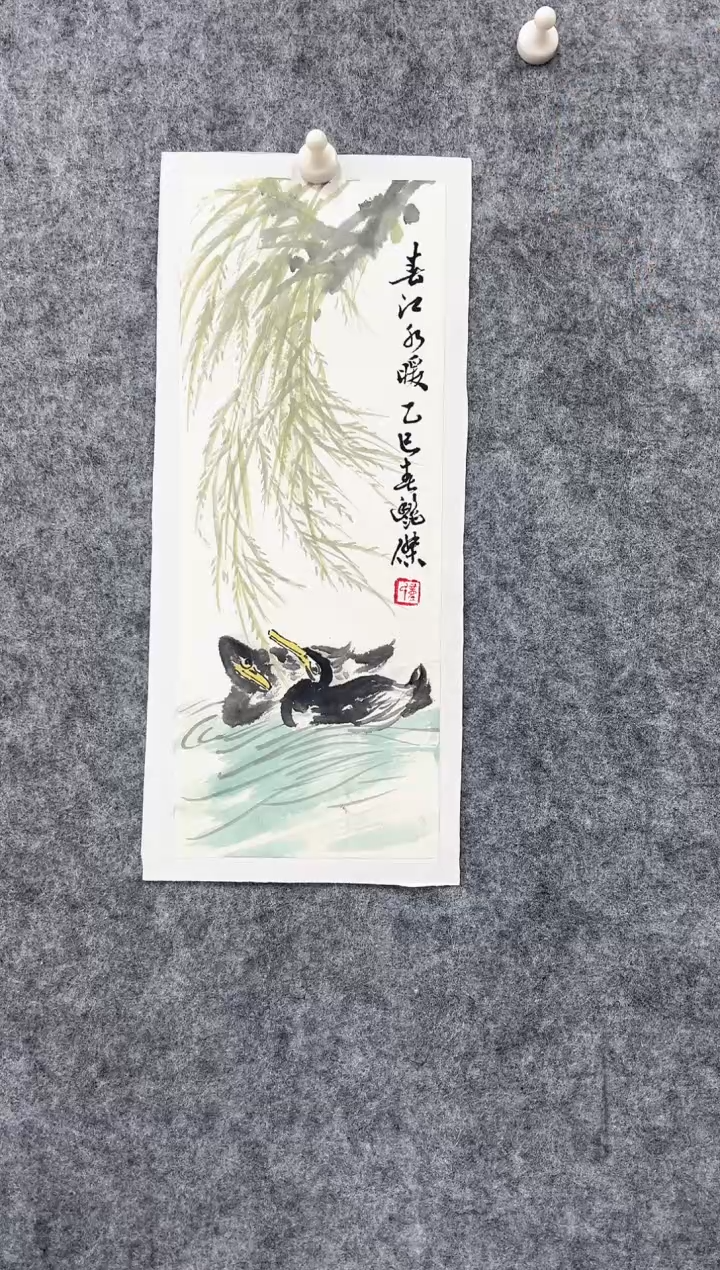 春江水暖乙巳春艷傑